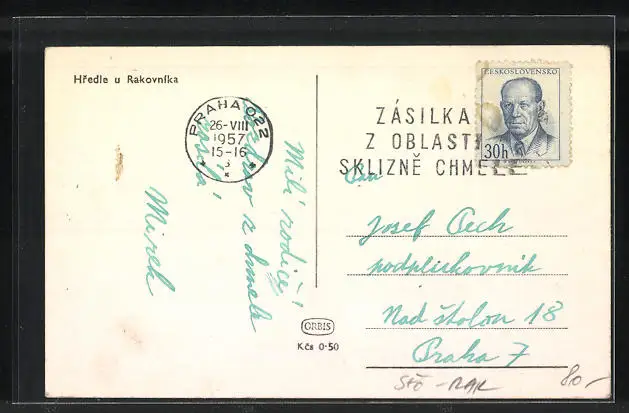 Hředle u Rakovníka
PRAHA 022
26-VIII
1957
15-16
3
ZÁSILKA
Z OBLASTI
SKLIZNĚ CHMELE
ČESKOSLOVENSKO
30h
Milí rodiče!
z chmele
Mirek
Pan
Josef Čech
podplukovník
Nad štolou 18
Praha 7
ORBIS
Kčs 0·50
80,-